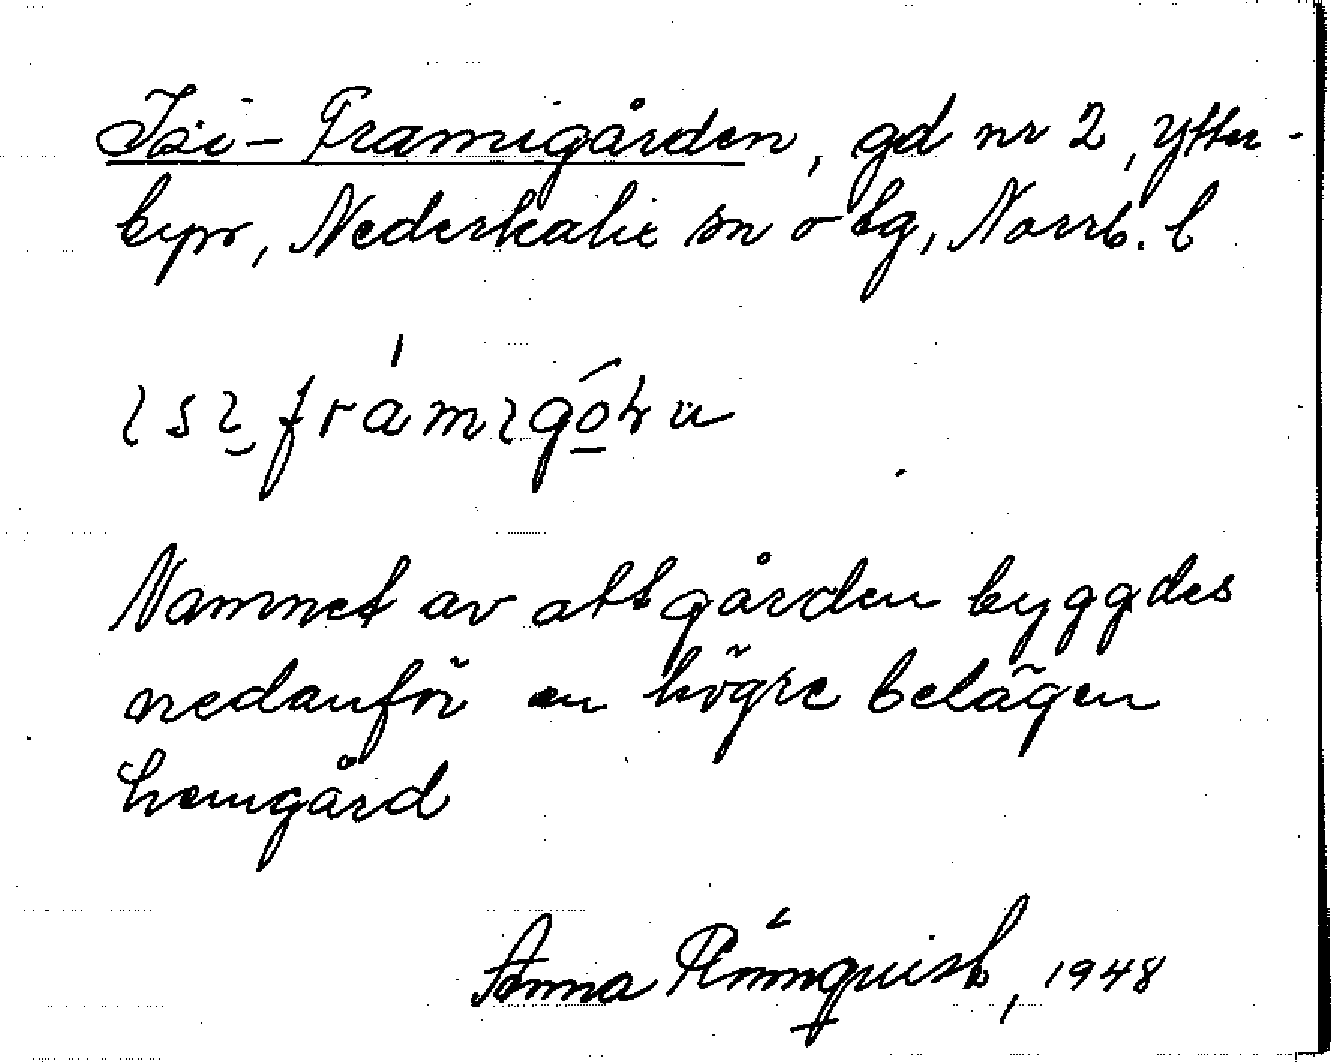 Isi-Framigården, gd nr 2, Ytter-
byn, Nederkalix sn o tg, Norrb. l
Namnet av att gården byggdes
nedanför en högre belägen
hemgård
Anna Rönnquist, 1948